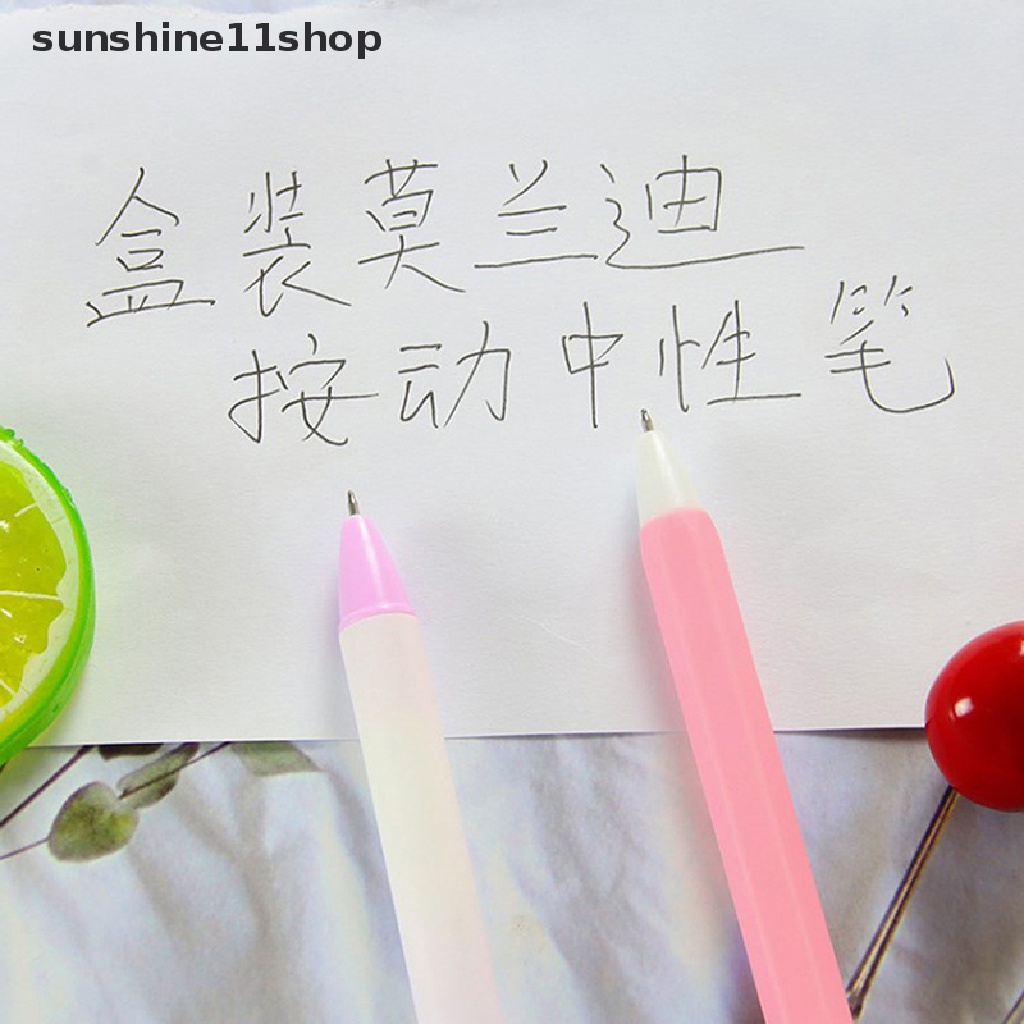 sunshine11shop
盒装莫兰迪
按动中性笔